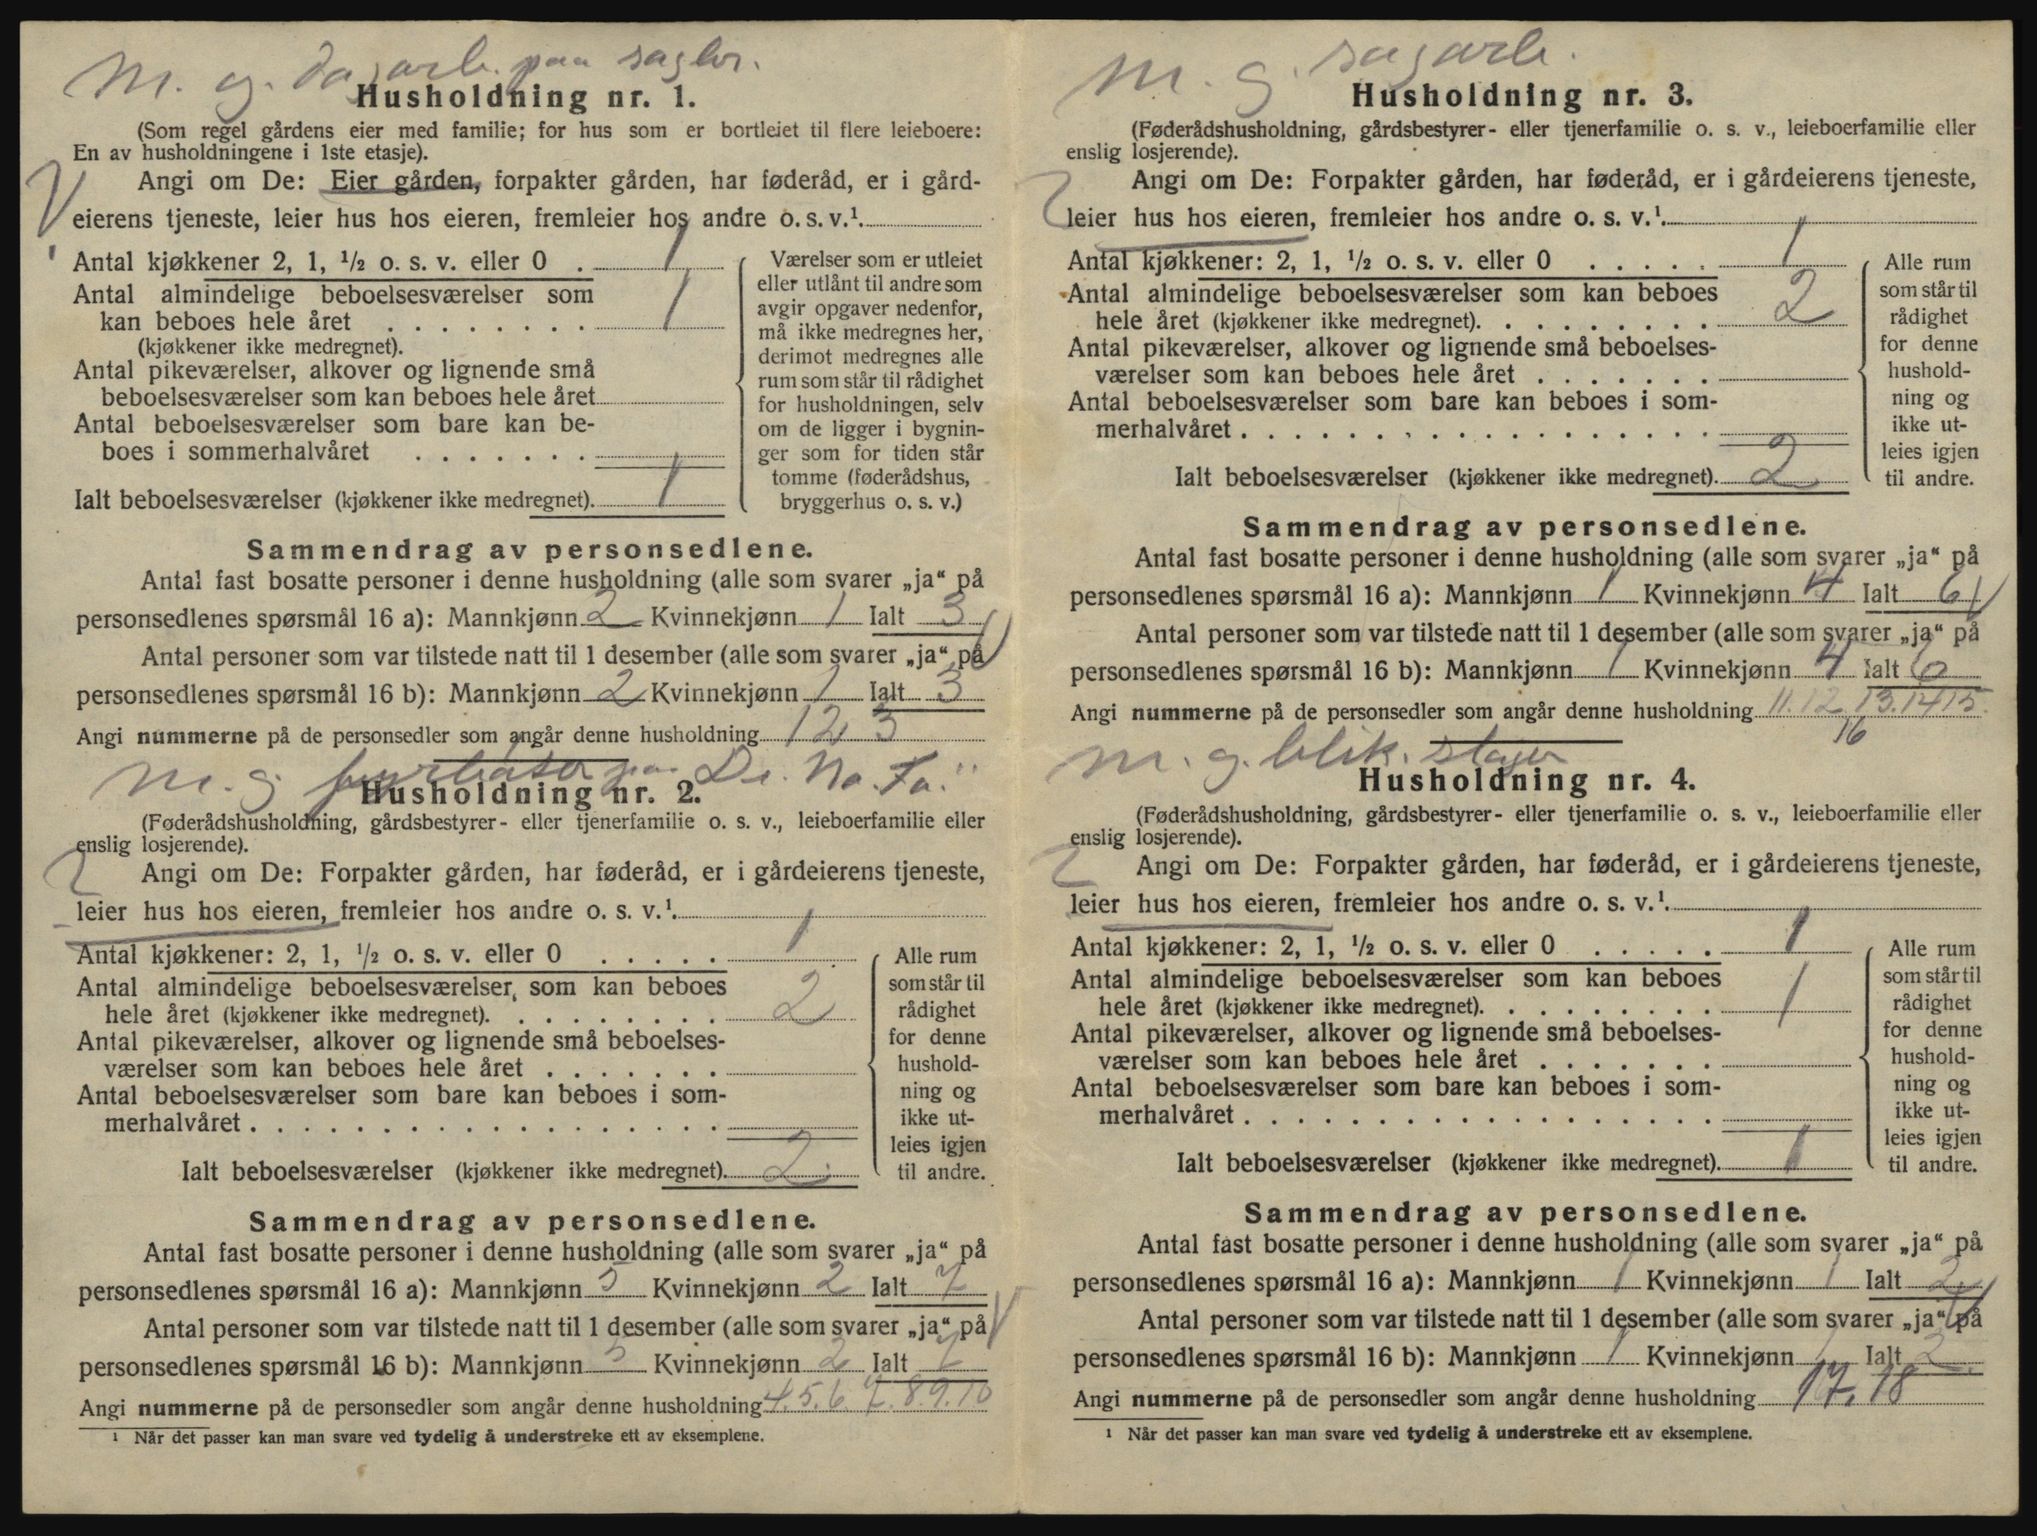 M. g. dagarb. paa sagbr.
Husholdning nr. 1.
(Som regel gårdens eier med familie; for hus som er bortleiet til flere leieboere:
En av husholdningene i 1ste etasje).
Angi om De: Eier gården, forpakter gården, har føderåd, er i gård-
eierens tjeneste, leier hus hos eieren, fremleier hos andre o. s. v.¹.
Antal kjøkkener 2, 1, ½ o. s. v. eller 0 . 1
Antal almindelige beboelsesværelser som
kan beboes hele året . . . . . . . . 1
(kjøkkener ikke medregnet).
Antal pikeværelser, alkover og lignende små
beboelsesværelser som kan beboes hele året
Antal beboelsesværelser som bare kan be-
boes i sommerhalvåret . . . . . . .
Ialt beboelsesværelser (kjøkkener ikke medregnet). 1
Værelser som er utleiet
eller utlånt til andre som
avgir opgaver nedenfor,
må ikke medregnes her,
derimot medregnes alle
rum som står til rådighet
for husholdningen, selv
om de ligger i bygnin-
ger som for tiden står
tomme (føderådshus,
bryggerhus o. s. v.)
Sammendrag av personsedlene.
Antal fast bosatte personer i denne husholdning (alle som svarer „ja“ på
personsedlenes spørsmål 16 a): Mannkjønn 2 Kvinnekjønn 1 Ialt 3
Antal personer som var tilstede natt til 1 desember (alle som svarer „ja“ på
personsedlenes spørsmål 16 b): Mannkjønn 2 Kvinnekjønn 1 Ialt 3
Angi nummerne på de personsedler som angår denne husholdning 1 2 3
M. g. fyrbøter paa De. No. Fa."
Husholdning nr. 2.
(Føderådshusholdning, gårdsbestyrer- eller tjenerfamilie o. s. v., leieboerfamilie eller
enslig losjerende).
Angi om De: Forpakter gården, har føderåd, er i gårdeierens tjeneste,
leier hus hos eieren, fremleier hos andre o. s. v.¹.
Antal kjøkkener: 2, 1, ½ o. s. v. eller 0 . . . . . 1
Antal almindelige beboelsesværelser som kan beboes
hele året (kjøkkener ikke medregnet). . . . . . . . . 2
Antal pikeværelser, alkover og lignende små beboelses-
værelser som kan beboes hele året . . . . . . .
Antal beboelsesværelser som bare kan beboes i som-
merhalvåret . . . . . . . . . . . . . . . . . . .
Ialt beboelsesværelser (kjøkkener ikke medregnet). 2
Alle rum
som står til
rådighet
for denne
hushold-
ning og
ikke ut-
leies igjen
til andre.
Sammendrag av personsedlene.
Antal fast bosatte personer i denne husholdning (alle som svarer „ja“ på
personsedlenes spørsmål 16 a): Mannkjønn 5 Kvinnekjønn 2 Ialt 7
Antal personer som var tilstede natt til 1 desember (alle som svarer „ja“ på
personsedlenes spørsmål 16 b): Mannkjønn 5 Kvinnekjønn 2 Ialt 7
Angi nummerne på de personsedler som angår denne husholdning 4. 5. 6. 7. 8. 9. 10
¹ Når det passer kan man svare ved tydelig å understreke ett av eksemplene.
M. g. sagarb.
Husholdning nr. 3.
(Føderådshusholdning, gårdsbestyrer- eller tjenerfamilie o. s. v., leieboerfamilie eller
enslig losjerende).
Angi om De: Forpakter gården, har føderåd, er i gårdeierens tjeneste,
leier hus hos eieren, fremleier hos andre o. s. v.¹.
Antal kjøkkener: 2, 1, ½ o. s. v. eller 0 . . . . . 1
Antal almindelige beboelsesværelser som kan beboes
hele året (kjøkkener ikke medregnet). . . . . . . . . 2
Antal pikeværelser, alkover og lignende små beboelses-
værelser som kan beboes hele året . . . . . . .
Antal beboelsesværelser som bare kan beboes i som-
merhalvåret . . . . . . . . . . . . . . . . . . .
Ialt beboelsesværelser (kjøkkener ikke medregnet). 2
Alle rum
som står til
rådighet
for denne
hushold-
ning og
ikke ut-
leies igjen
til andre.
Sammendrag av personsedlene.
Antal fast bosatte personer i denne husholdning (alle som svarer „ja“ på
personsedlenes spørsmål 16 a): Mannkjønn 1 Kvinnekjønn 4 Ialt 6
Antal personer som var tilstede natt til 1 desember (alle som svarer „ja“ på
personsedlenes spørsmål 16 b): Mannkjønn 1 Kvinnekjønn 4 Ialt 6
Angi nummerne på de personsedler som angår denne husholdning 11. 12. 13. 14 15.
16
M. g. blik. slager
Husholdning nr. 4.
(Føderådshusholdning, gårdsbestyrer- eller tjenerfamilie o. s. v., leieboerfamilie eller
enslig losjerende).
Angi om De: Forpakter gården, har føderåd, er i gårdeierens tjeneste,
leier hus hos eieren, fremleier hos andre o. s. v.¹.
Antal kjøkkener: 2, 1, ½ o. s. v. eller 0 . . . . . 1
Antal almindelige beboelsesværelser som kan beboes
hele året (kjøkkener ikke medregnet). . . . . . . . . 1
Antal pikeværelser, alkover og lignende små beboelses-
værelser som kan beboes hele året . . . . . . .
Antal beboelsesværelser som bare kan beboes i som-
merhalvåret . . . . . . . . . . . . . . . . . . .
Ialt beboelsesværelser (kjøkkener ikke medregnet). 1
Alle rum
som står til
rådighet
for denne
hushold-
ning og
ikke ut-
leies igjen
til andre.
Sammendrag av personsedlene.
Antal fast bosatte personer i denne husholdning (alle som svarer „ja“ på
personsedlenes spørsmål 16 a): Mannkjønn 1 Kvinnekjønn 1 Ialt 2
Antal personer som var tilstede natt til 1 desember (alle som svarer „ja“ på
personsedlenes spørsmål 16 b): Mannkjønn 1 Kvinnekjønn 1 Ialt 2.
Angi nummerne på de personsedler som angår denne husholdning 17. 18
¹ Når det passer kan man svare ved tydelig å understreke ett av eksemplene.